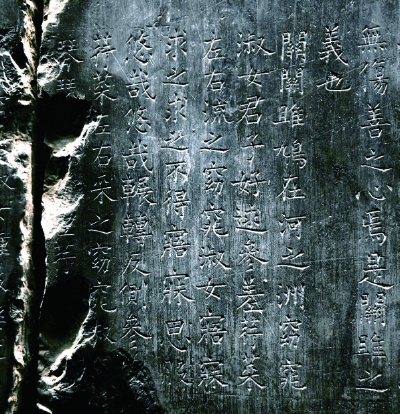 無傷善之心焉是關雎之
義也
關關雎鳩在河之洲窈窕
淑女君子好逑參差荇菜
左右流之窈窕淑女寤寐
求之求之不得寤寐思服
悠哉悠哉輾轉反側參
荇菜左右采之窈窕
琴瑟